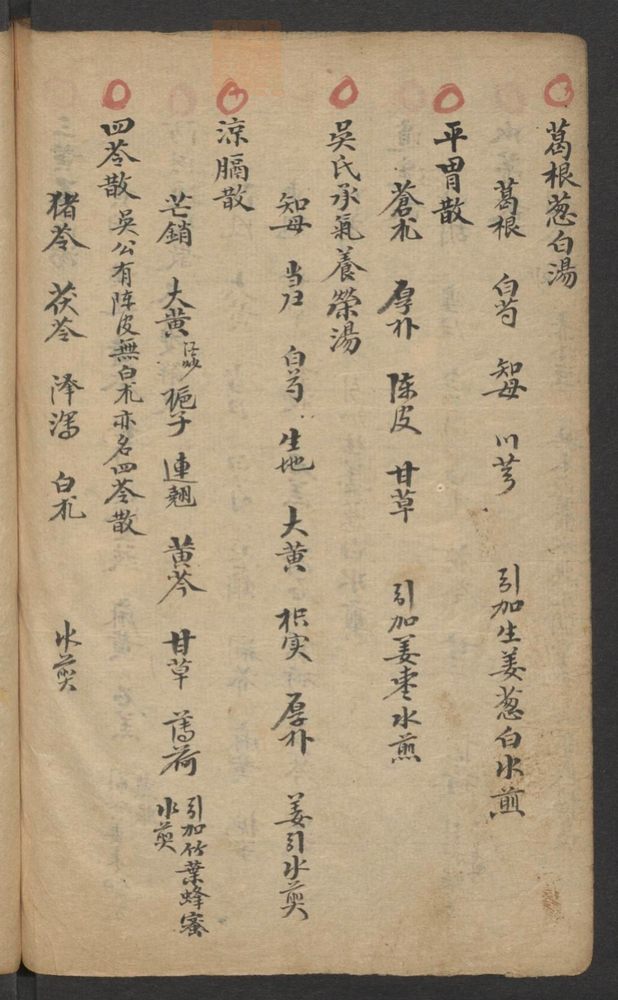 葛根葱白湯
葛根 白芍 知母 川芎 引加生姜葱白水煎
平胃散
蒼朮 厚朴 陈皮 甘草 引加姜枣水煎
吳氏承氣養榮湯
知母 当归 白芍 生地 大黄 枳实 厚朴 姜引水煎
涼膈散
芒銷 大黄 梔子 連翹 黄芩 甘草 薄荷 引加竹葉蜂蜜水煎
四苓散 吳公有陈皮無白朮亦名四苓散
猪苓 茯苓 泽泻 白朮 水煎